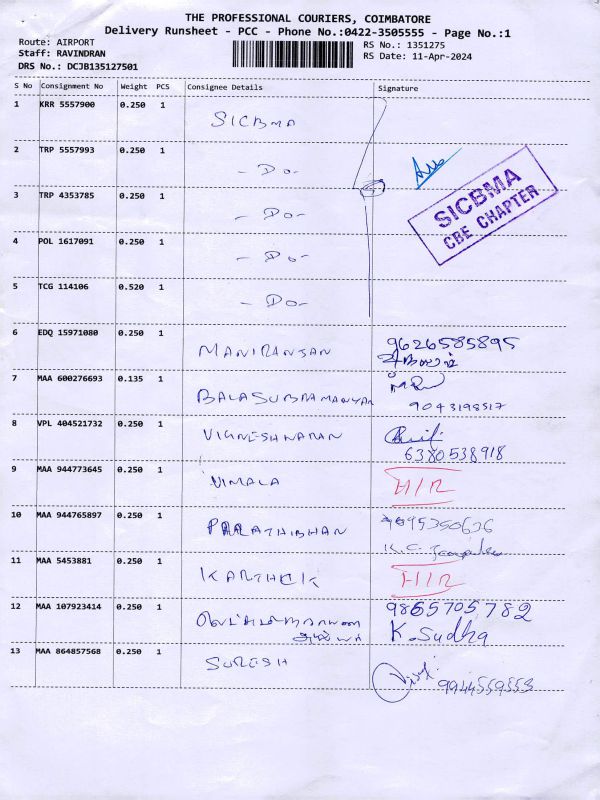 THE PROFESSIONAL COURIERS, COIMBATORE
Delivery Runsheet - PCC - Phone No.:0422-3505555 - Page No.:1
Route: AIRPORT
RS No.: 1351275
Staff: RAVINDRAN
RS Date: 11-Apr-2024
DRS No.: DCJB135127501
S No Consignment No Weight PCS Consignee Details Signature
1 KRR 5557900 0.250 1 SICBMA
2 TRP 5557993 0.250 1 - Do -
3 TRP 4353785 0.250 1 - Do -
SICBMA
CBE CHAPTER
4 POL 1617091 0.250 1 - Do -
5 TCG 114106 0.520 1 - Do -
6 EDQ 15971080 0.250 1 MANIRANJAN 9626585895
7 MAA 600276693 0.135 1 BALASUBRAMANYAN
9043198517
8 VPL 404521732 0.250 1 VIGNESHWARAN
6380538918
9 MAA 944773645 0.250 1 VIMALA H/R
10 MAA 944765897 0.250 1 PARATHIBHAN
K.C.
11 MAA 5453881 0.250 1 KARTHEIK H/R
12 MAA 107923414 0.250 1 9865705782
K. Sudha
13 MAA 864857568 0.250 1 SURESH
9944559553